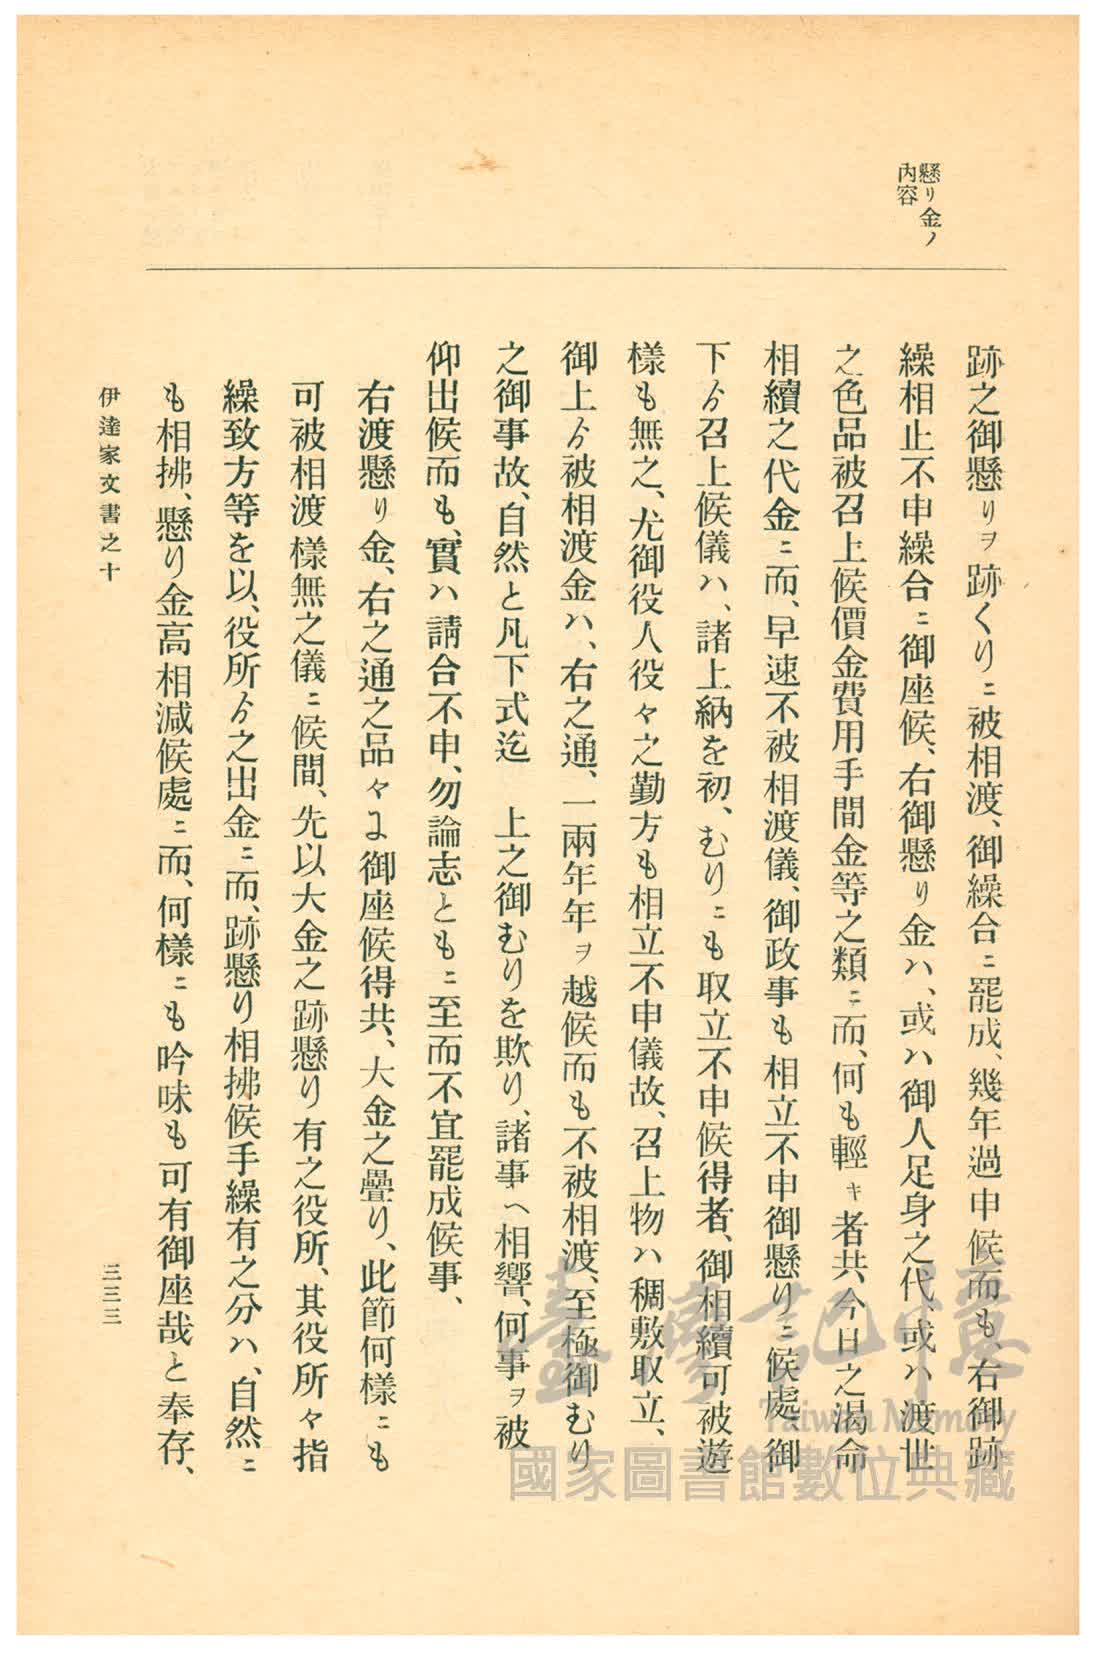 懸リ金ノ
內容
跡之御懸リヲ跡くりニ被相渡、御繰合ニ罷成、幾年過申候而も、右御跡
繰相止不申繰合ニ御座候、右御懸リ金ハ、或ハ御人足身之代、或ハ渡世
之色品被召上候價金費用手間金等之類ニ而、何も輕キ者共、今日之渴命
相續之代金ニ而、早速不被相渡儀、御政事も相立不申御懸りニ候處、御
下ゟ召上候儀ハ、諸上納を初、むりニも取立不申候得者、御相續可被遊
樣も無之、尤御役人役々之勤方も相立不申儀故、召上物ハ稠敷取立、
御上ゟ被相渡金ハ、右之通、一兩年年ヲ越候而も不被相渡、至極御むり
之御事故、自然と凡下式迄　上之御むりを欺り、諸事へ相響、何事ヲ被
仰出候而も、實ハ請合不申、勿論志ともニ至而不宜罷成候事、
右渡懸リ金、右之通之品々ニ御座候得共、大金之疊り、此節何樣ニも
可被相渡樣無之儀ニ候間、先以大金之跡懸り有之役所、其役所々指
繰致方等を以、役所ゟ之出金ニ而、跡懸り相拂候手繰有之分ハ、自然ニ
も相拂、懸り金高相減候處ニ而、何樣ニも吟味も可有御座哉と奉存、
伊達家文書之十
三三三
臺灣記憶
Taiwan Memory
國家圖書館數位典藏